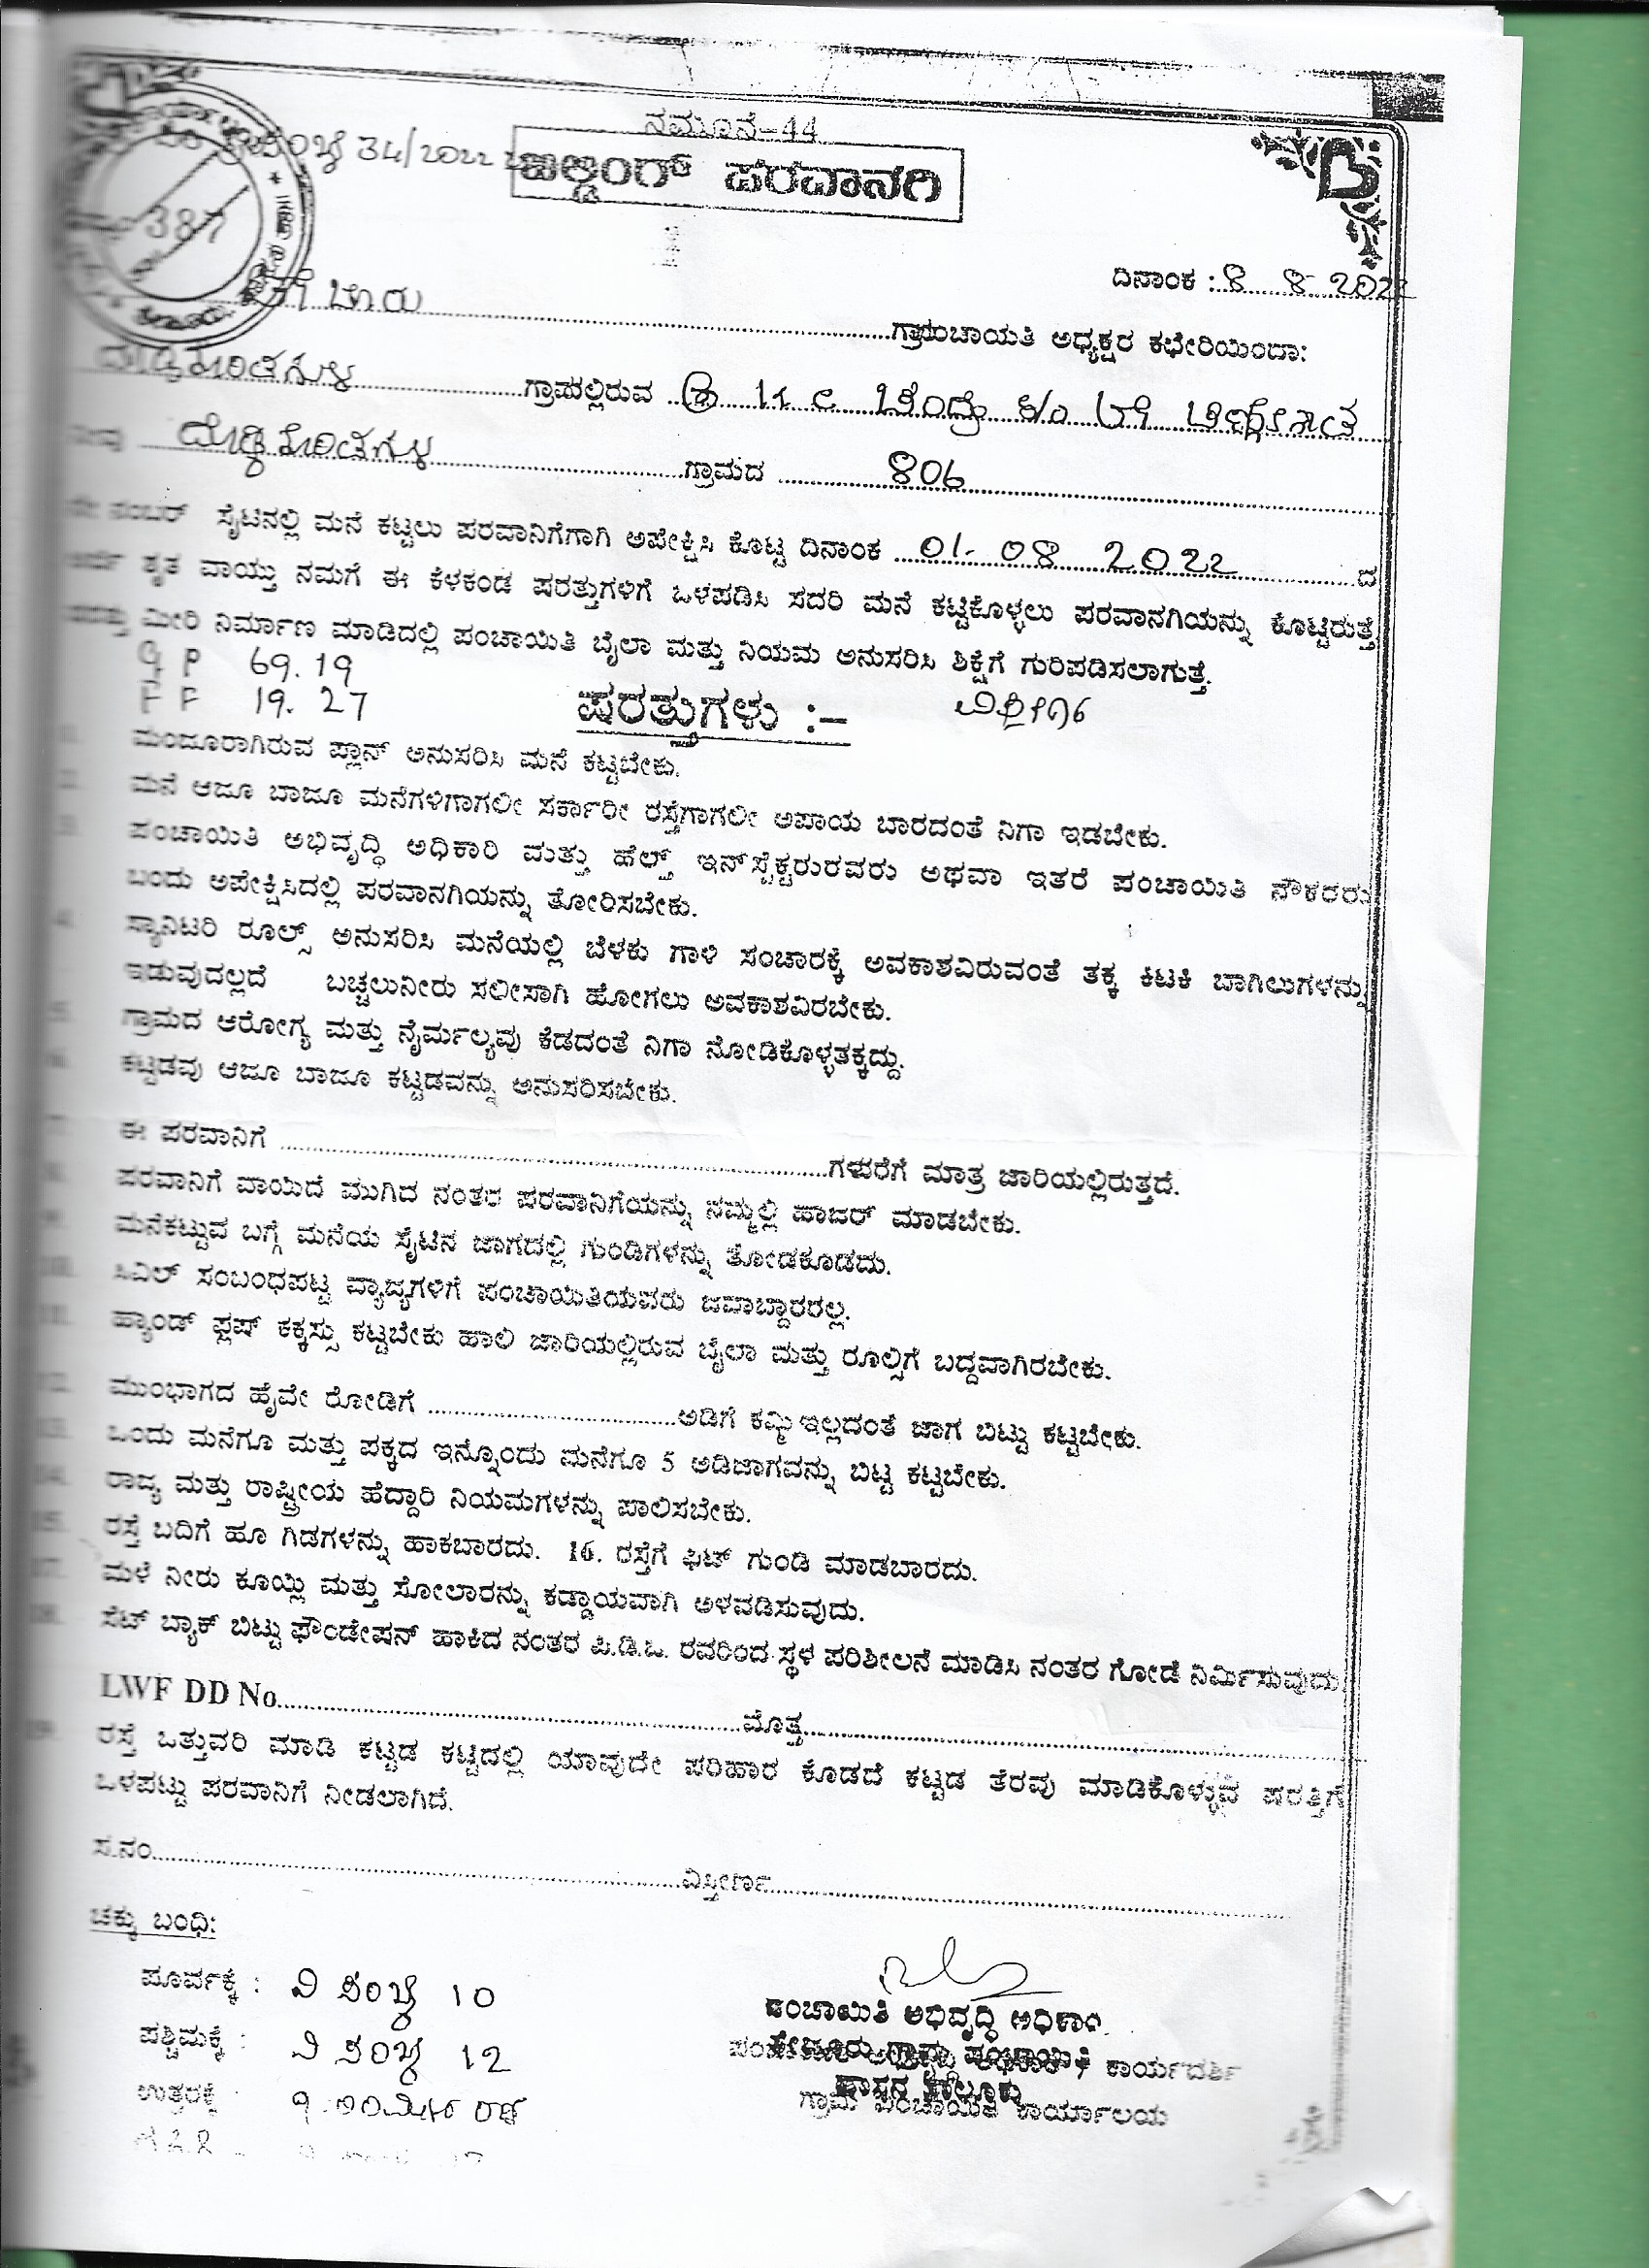 ನಮೂನೆ-44
34/2022
ಬಿಲ್ಡಿಂಗ್ ಪರವಾನಗಿ
387
ದಿನಾಂಕ : 8 8 2022
ಗ್ರಾಮಪಂಚಾಯತಿ ಅಧ್ಯಕ್ಷರ ಕಛೇರಿಯಿಂದಾ:
ಗ್ರಾಮದಲ್ಲಿರುವ
ಗ್ರಾಮದ 806
ನೇ ನಂಬರ್ ಸೈಟಿನಲ್ಲಿ ಮನೆ ಕಟ್ಟಲು ಪರವಾನಿಗೆಗಾಗಿ ಅಪೇಕ್ಷಿಸಿ ಕೊಟ್ಟ ದಿನಾಂಕ 01- 08 2022 ದ
ಅರ್ಜಿ ಶೃತ ವಾಯ್ತು ನಮಗೆ ಈ ಕೆಳಕಂಡ ಷರತ್ತುಗಳಿಗೆ ಒಳಪಡಿಸಿ ಸದರಿ ಮನೆ ಕಟ್ಟಿಕೊಳ್ಳಲು ಪರವಾನಗಿಯನ್ನು ಕೊಟ್ಟಿರುತ್ತೆ
ಷರತ್ತು ಮೀರಿ ನಿರ್ಮಾಣ ಮಾಡಿದಲ್ಲಿ ಪಂಚಾಯಿತಿ ಬೈಲಾ ಮತ್ತು ನಿಯಮ ಅನುಸರಿಸಿ ಶಿಕ್ಷೆಗೆ ಗುರಿಪಡಿಸಲಾಗುತ್ತೆ.
69.19
FF 19.27
ಷರತ್ತುಗಳು :-
ಮಂಜೂರಾಗಿರುವ ಪ್ಲಾನ್ ಅನುಸರಿಸಿ ಮನೆ ಕಟ್ಟಬೇಕು.
ಮನೆ ಆಜೂ ಬಾಜೂ ಮನೆಗಳಿಗಾಗಲೀ ಸರ್ಕಾರೀ ರಸ್ತೆಗಾಗಲೀ ಅಪಾಯ ಬಾರದಂತೆ ನಿಗಾ ಇಡಬೇಕು.
ಪಂಚಾಯಿತಿ ಅಭಿವೃದ್ಧಿ ಅಧಿಕಾರಿ ಮತ್ತು ಹೆಲ್ತ್ ಇನ್‌ಸ್ಪೆಕ್ಟರುರವರು ಅಥವಾ ಇತರೆ ಪಂಚಾಯಿತಿ ನೌಕರರು
ಬಂದು ಅಪೇಕ್ಷಿಸಿದಲ್ಲಿ ಪರವಾನಗಿಯನ್ನು ತೋರಿಸಬೇಕು.
ಸ್ಯಾನಿಟರಿ ರೂಲ್ಸ್ ಅನುಸರಿಸಿ ಮನೆಯಲ್ಲಿ ಬೆಳಕು ಗಾಳಿ ಸಂಚಾರಕ್ಕೆ ಅವಕಾಶವಿರುವಂತೆ ತಕ್ಕ ಕಿಟಕಿ ಬಾಗಿಲುಗಳನ್ನು
ಇಡುವುದಲ್ಲದೆ ಬಚ್ಚಲುನೀರು ಸಲೀಸಾಗಿ ಹೋಗಲು ಅವಕಾಶವಿರಬೇಕು.
ಗ್ರಾಮದ ಆರೋಗ್ಯ ಮತ್ತು ನೈರ್ಮಲ್ಯವು ಕೆಡದಂತೆ ನಿಗಾ ನೋಡಿಕೊಳ್ಳತಕ್ಕದ್ದು.
ಕಟ್ಟಡವು ಆಜೂ ಬಾಜೂ ಕಟ್ಟಡವನ್ನು ಅನುಸರಿಸಬೇಕು.
ಈ ಪರವಾನಿಗೆ ಗಳವರೆಗೆ ಮಾತ್ರ ಜಾರಿಯಲ್ಲಿರುತ್ತದೆ.
ಪರವಾನಿಗೆ ವಾಯಿದೆ ಮುಗಿದ ನಂತರ ಪರವಾನಿಗೆಯನ್ನು ನಮ್ಮಲ್ಲಿ ಹಾಜರ್ ಮಾಡಬೇಕು.
ಮನೆಕಟ್ಟುವ ಬಗ್ಗೆ ಮನೆಯ ಸೈಟಿನ ಜಾಗದಲ್ಲಿ ಗುಂಡಿಗಳನ್ನು ತೋಡಕೂಡದು.
ಸಿವಿಲ್ ಸಂಬಂಧಪಟ್ಟ ವ್ಯಾಜ್ಯಗಳಿಗೆ ಪಂಚಾಯಿತಿಯವರು ಜವಾಬ್ದಾರರಲ್ಲ.
ಹ್ಯಾಂಡ್ ಫ್ಲಷ್ ಕಕ್ಕಸ್ಸು ಕಟ್ಟಬೇಕು ಹಾಲಿ ಜಾರಿಯಲ್ಲಿರುವ ಬೈಲಾ ಮತ್ತು ರೂಲ್ಸಿಗೆ ಬದ್ದವಾಗಿರಬೇಕು.
12. ಮುಂಭಾಗದ ಹೈವೇ ರೋಡಿಗೆ ಅಡಿಗೆ ಕಮ್ಮಿ ಇಲ್ಲದಂತೆ ಜಾಗ ಬಿಟ್ಟು ಕಟ್ಟಬೇಕು.
13. ಒಂದು ಮನೆಗೂ ಮತ್ತು ಪಕ್ಕದ ಇನ್ನೊಂದು ಮನೆಗೂ 5 ಅಡಿಜಾಗವನ್ನು ಬಿಟ್ಟ ಕಟ್ಟಬೇಕು.
14. ರಾಜ್ಯ ಮತ್ತು ರಾಷ್ಟ್ರೀಯ ಹೆದ್ದಾರಿ ನಿಯಮಗಳನ್ನು ಪಾಲಿಸಬೇಕು.
15. ರಸ್ತೆ ಬದಿಗೆ ಹೂ ಗಿಡಗಳನ್ನು ಹಾಕಬಾರದು. 16. ರಸ್ತೆಗೆ ಫಿಟ್ ಗುಂಡಿ ಮಾಡಬಾರದು.
17. ಮಳೆ ನೀರು ಕೂಯ್ಲಿ ಮತ್ತು ಸೋಲಾರನ್ನು ಕಡ್ಡಾಯವಾಗಿ ಅಳವಡಿಸುವುದು.
18. ಸೆಟ್ ಬ್ಯಾಕ್ ಬಿಟ್ಟು ಫೌಂಡೇಷನ್ ಹಾಕಿದ ನಂತರ ಪಿ.ಡಿ.ಒ. ರವರಿಂದ ಸ್ಥಳ ಪರಿಶೀಲನೆ ಮಾಡಿಸಿ ನಂತರ ಗೋಡೆ ನಿರ್ಮಿಸುವುದು.
LWF DD No. ಮೊತ್ತ
19. ರಸ್ತೆ ಒತ್ತುವರಿ ಮಾಡಿ ಕಟ್ಟಡ ಕಟ್ಟಿದಲ್ಲಿ ಯಾವುದೇ ಪರಿಹಾರ ಕೊಡದೆ ಕಟ್ಟಡ ತೆರವು ಮಾಡಿಕೊಳ್ಳುವ ಷರತ್ತಿಗೆ
ಒಳಪಟ್ಟು ಪರವಾನಿಗೆ ನೀಡಲಾಗಿದೆ.
ಸ.ನಂ. ವಿಸ್ತೀರ್ಣ
ಚಕ್ಕು ಬಂಧಿ:
ಪೂರ್ವಕ್ಕೆ : ವಿ ಸಂಖ್ಯೆ 10
ಪಶ್ಚಿಮಕ್ಕೆ : ವಿ ಸಂಖ್ಯೆ 12
ಉತ್ತರಕ್ಕೆ
ಪಂಚಾಯಿತಿ ಅಭಿವೃದ್ಧಿ ಅಧಿಕಾರಿ
ಕಾರ್ಯದರ್ಶಿ
ಗ್ರಾಮ ಪಂಚಾಯಿತಿ ಕಾರ್ಯಾಲಯ